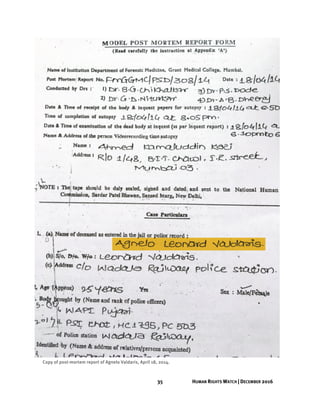 MODEL POST MORTEM REPORT FORM
(Read carefully the instruction at Appendix 'A')
Name of Institution Department of Forensic Medicine, Grant Medical College, Mumbai.
Post Mortem Report No. FMGGMC/PSD/308/14 Date : 18/04/14
Conducted by Drs : 1) Dr. B.G. Chikhalkar 3) Dr. P.S.
2) Dr G.D. 4) Dr. A.B.
Date & Time of receipt of the body & inquest papers for autopsy : 18/04/14 at
Time of completion of autopsy 18/04/14 at 8.05 pm.
Date & Time of examination of the dead body at inquest (as per inquest report) : 18/04/14
Name & Address of the person Videorecording the autopsy
Name : Ahmed Kamaluddin Kazi
Address : R/o 1/48, B.I.T. chawl, J.R. street,
Mumbai 03.
NOTE : The tape should be duly sealed, signed and dated, and sent to the National Human
Commission, Sardar Patel Bhavan, Sansad Marg, New Delhi,
Case Particulars
1. (a) Name of deceased as entered in the jail or police record :
Agnelo Leonard Valdaris.
(b) S/o, D/o, W/o : Leonard Valdaris.
(c) Address c/o Wadala Railway police station.
Age (Approx) 25 years Yrs Sex : Male/Female
Body brought by (Name and rank of police officers)
WAPI Pujari
PSI HC 1795, PC 503
of Police station Wadala Railway.
Identified by (Name & address of relatives/persons acquainted)
Leonard Valdaris
Copy of post-mortem report of Agnelo Valdaris, April 18, 2014.
35 HUMAN RIGHTS WATCH | DECEMBER 2016